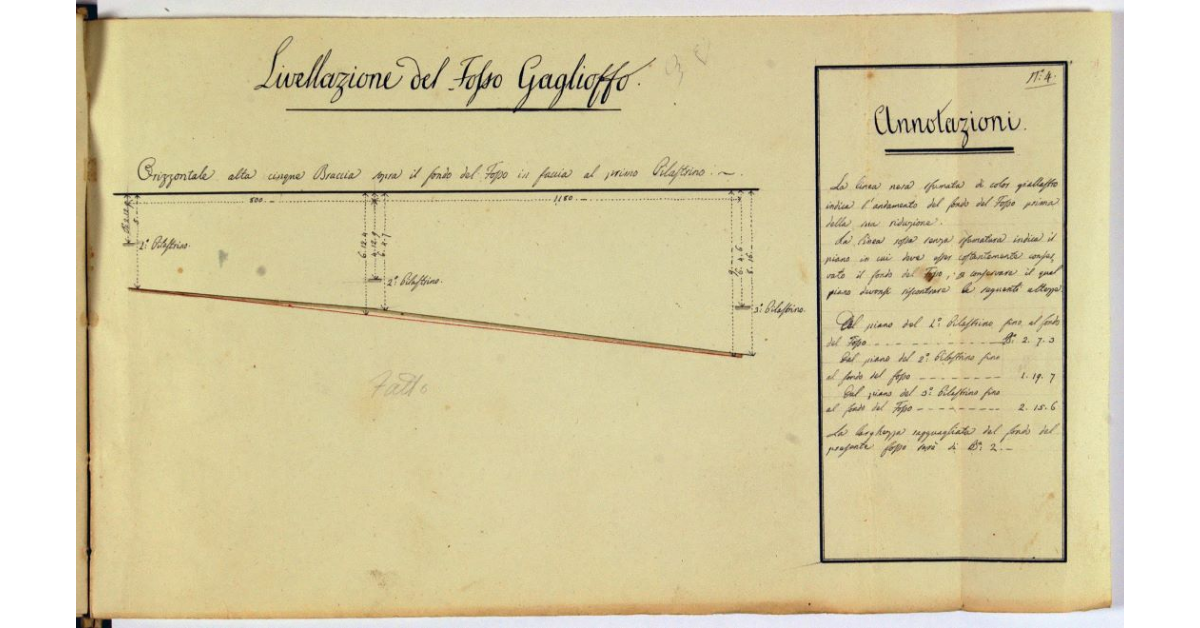 Livellazione del Fosso Gaglioffo.
Orizzontale alta cinque Braccia sopra il fondo del Fosso in faccia al primo Pilastrino.
500
1180
1º Pilastrino
2º Pilastrino.
3º Pilastrino.
6.12.4
4.12.9
6.4.7
6.4.6
8.16
Fatto
Nº 4.
Annotazioni.
La linea nera sfumata di color giallastro
indica l'andamento del fondo del Fosso prima
della sua riduzione.
La linea rossa senza sfumatura indica il
piano in cui deve esser costantemente conser,
vato il fondo del Fosso, a conservare il qual
piano dovransi riscontrare le seguenti altezze
Dal piano del 1º Pilastrino fino al fondo
del Fosso Bª 2. 7. 3
Dal piano del 2º Pilastrino fino
al fondo del fosso 1. 19. 7
Dal piano del 3º Pilastrino fino
al fondo del Fosso 2. 15. 6
La larghezza ragguagliata del fondo del
presente fosso sarà di Bª 2.